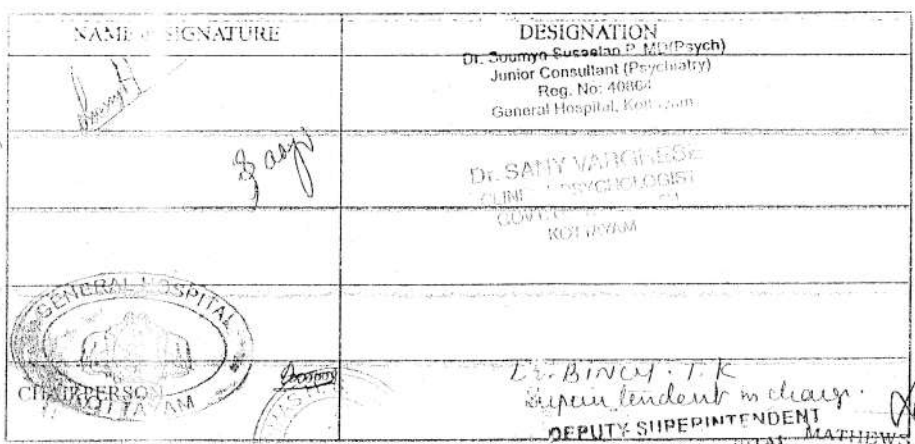 NAME & SIGNATURE
DESIGNATION
Dr. Soumya Susselan P. MD(Psych)
Junior Consultant (Psychiatry)
Reg. No: 40864
General Hospital,
Dr. SANY VARGHESE
PSYCHOLOGIST
KOTTAYAM
GENERAL HOSPITAL
KOTTAYAM
CHAIRPERSON
Dr. BINCY. T. K
Superintendent in charge.
DEPUTY SUPERINTENDENT
MATHEWS